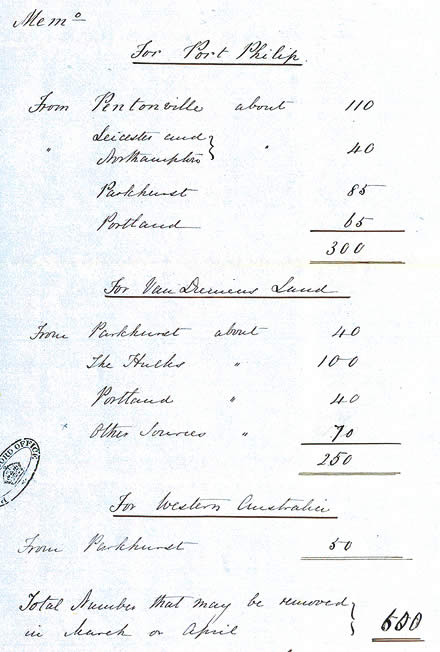 Memo
For Port Philip.
From Pentonville about 110
" Leicester and
Northampton } " 40
Parkhurst 85
Portland 65
300
For Van Diemens Land
From Parkhurst about 40
The Hulks " 100
Portland " 40
Other Sources " 70
250
For Western Australia
From Parkhurst 50
Total Number that may be removed
in March or April } 600
ORD OFFICE